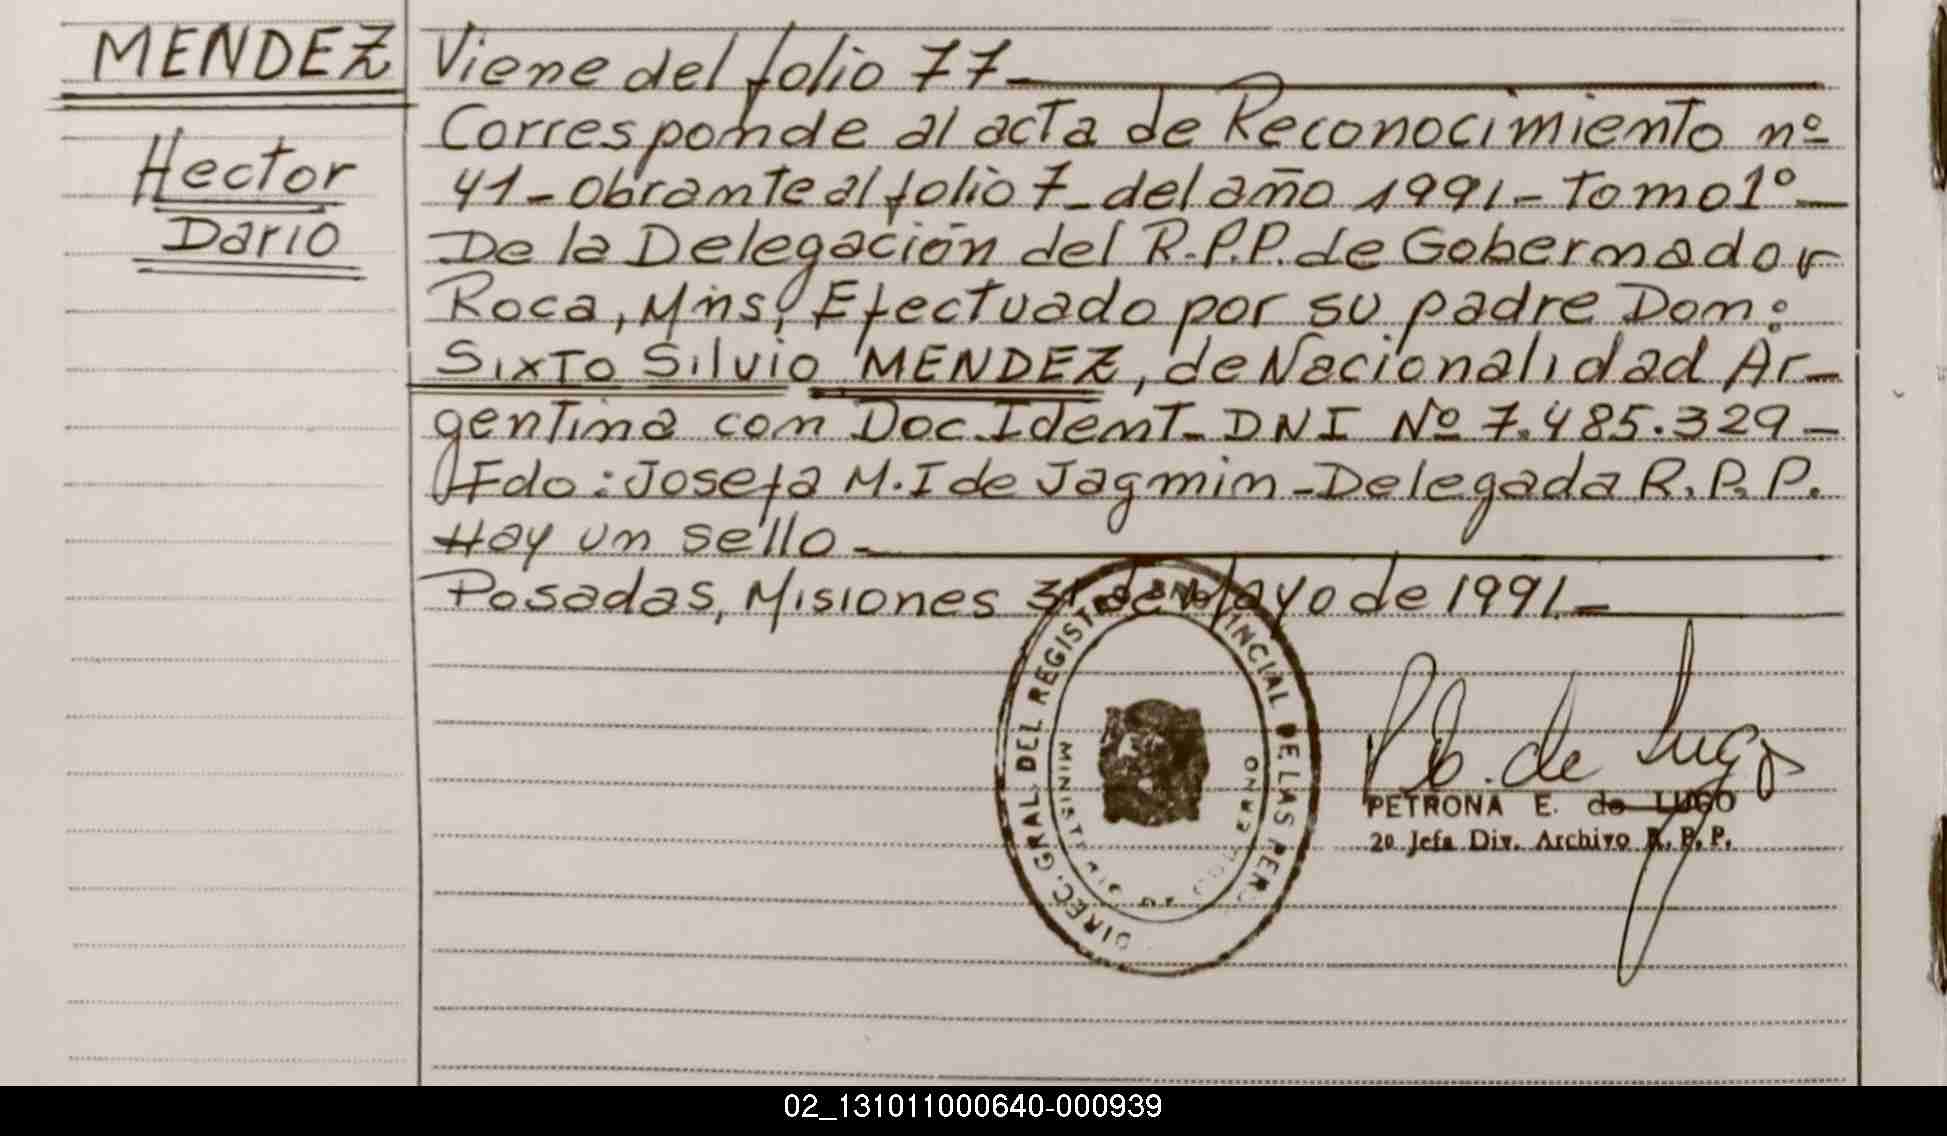 MENDEZ
Hector
Dario
Viene del folio 77-
Corresponde al acta de Reconocimiento nº
41-Obrante al folio 7-del año 1991-Tomo 1º-
De la Delegación del R.P.P. de Gobernador
Roca, Mns, Efectuado por su padre Don:
Sixto Silvio MENDEZ, de Nacionalidad Ar-
gentina con Doc.Ident-DNI Nº 7.485.329-
Fdo: Josefa M.I de Jagmin-Delegada R.P.P.
Hay un sello-
Posadas, Misiones 31 de Mayo de 1991-
DIREC. GRAL. DEL REGISTRO PROVINCIAL DE LAS PERS
MINISTERIO DE GOBIERNO
P.E. de Lugo
PETRONA E. de LUGO
2º Jefa Div. Archivo R.P.P.
02_131011000640-000939